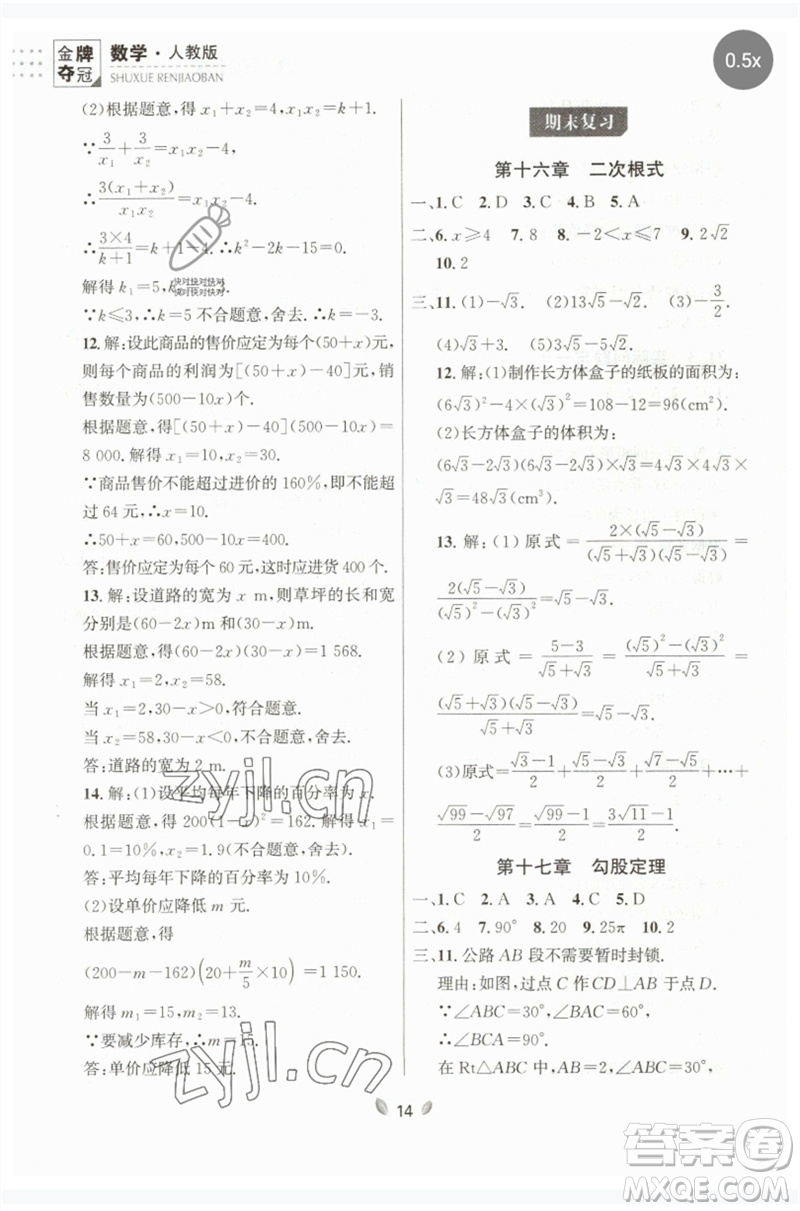 金牌夺冠 数学·人教版
SHUXUE RENJIAOBAN
0.5x
(2)根据题意,得 x₁+x₂=4,x₁x₂=k+1.
∵3/x₁+3/x₂=x₁x₂-4,
∴3(x₁+x₂)/x₁x₂=x₁x₂-4.
∴(3×4)/(k+1)=k+1-4.∴k²-2k-15=0.
解得 k₁=5,k
快对快对快对
快对快对快对
∵k≤3,∴k=5 不合题意,舍去.∴k=-3.
12. 解:设此商品的售价应定为每个(50+x)元,
则每个商品的利润为[(50+x)-40]元,销
售数量为(500-10x)个.
根据题意,得[(50+x)-40](500-10x)=
8 000. 解得 x₁=10,x₂=30.
∵商品售价不能超过进价的 160%,即不能超
过 64 元,∴x=10.
∴50+x=60,500-10x=400.
答:售价应定为每个 60 元,这时应进货 400 个.
13. 解:设道路的宽为 x m,则草坪的长和宽
分别是(60-2x)m 和(30-x)m.
根据题意,得(60-2x)(30-x)=1 568.
解得 x₁=2,x₂=58.
当 x₁=2,30-x>0,符合题意.
当 x₂=58,30-x<0,不合题意,舍去.
答:道路的宽为 2 m.
14. 解:(1)设平均每年下降的百分率为 x.
根据题意,得 200(1-x)²=162. 解得 x₁=
0.1=10%,x₂=1.9(不合题意,舍去).
答:平均每年下降的百分率为 10%.
(2)设单价应降低 m 元.
根据题意,得
(200-m-162)(20+m/5×10)=1 150.
解得 m₁=15,m₂=13.
∵要减少库存,∴m=15.
答:单价应降低 15 元.
期末复习
第十六章 二次根式
一、1. C 2. D 3. C 4. B 5. A
二、6. x≥4 7. 8 8. -2<x≤7 9. 2√2
10. 2
三、11. (1)-√3. (2)13√5-5√2. (3)-3/2.
(4)√3+3. (5)-30√2.
12. 解:(1)制作长方体盒子的纸板的面积为:
(6√3)²-4×(√3)²=108-12=96(cm²).
(2)长方体盒子的体积为:
(6√3-2√3)(6√3-2√3)×√3=4√3×4√3×
√3=48√3(cm³).
13. 解:(1)原式=2×(√5-√3)/(√5+√3)(√5-√3)=
2(√5-√3)/((√5)²-(√3)²)=√5-√3.
(2)原式=(5-3)/(√5+√3)=((√5)²-(√3)²)/(√5+√3)=
(√5+√3)(√5-√3)/(√5+√3)=√5-√3.
(3)原式=(√3-1)/2+(√5-√3)/2+(√7-√5)/2+…+
(√99-√97)/2=(√99-1)/2=(3√11-1)/2.
第十七章 勾股定理
一、1. C 2. A 3. A 4. C 5. D
二、6. 4 7. 90° 8. 20 9. 25π 10. 2
三、11. 公路 AB 段不需要暂时封锁.
理由:如图,过点 C 作 CD⊥AB 于点 D.
∵∠ABC=30°,∠BAC=60°,
∴∠BCA=90°.
在 Rt△ABC 中,AB=2,∠ABC=30°,
14
zyjl.cn
zyjl.cn
答案卷
MXQE.COM